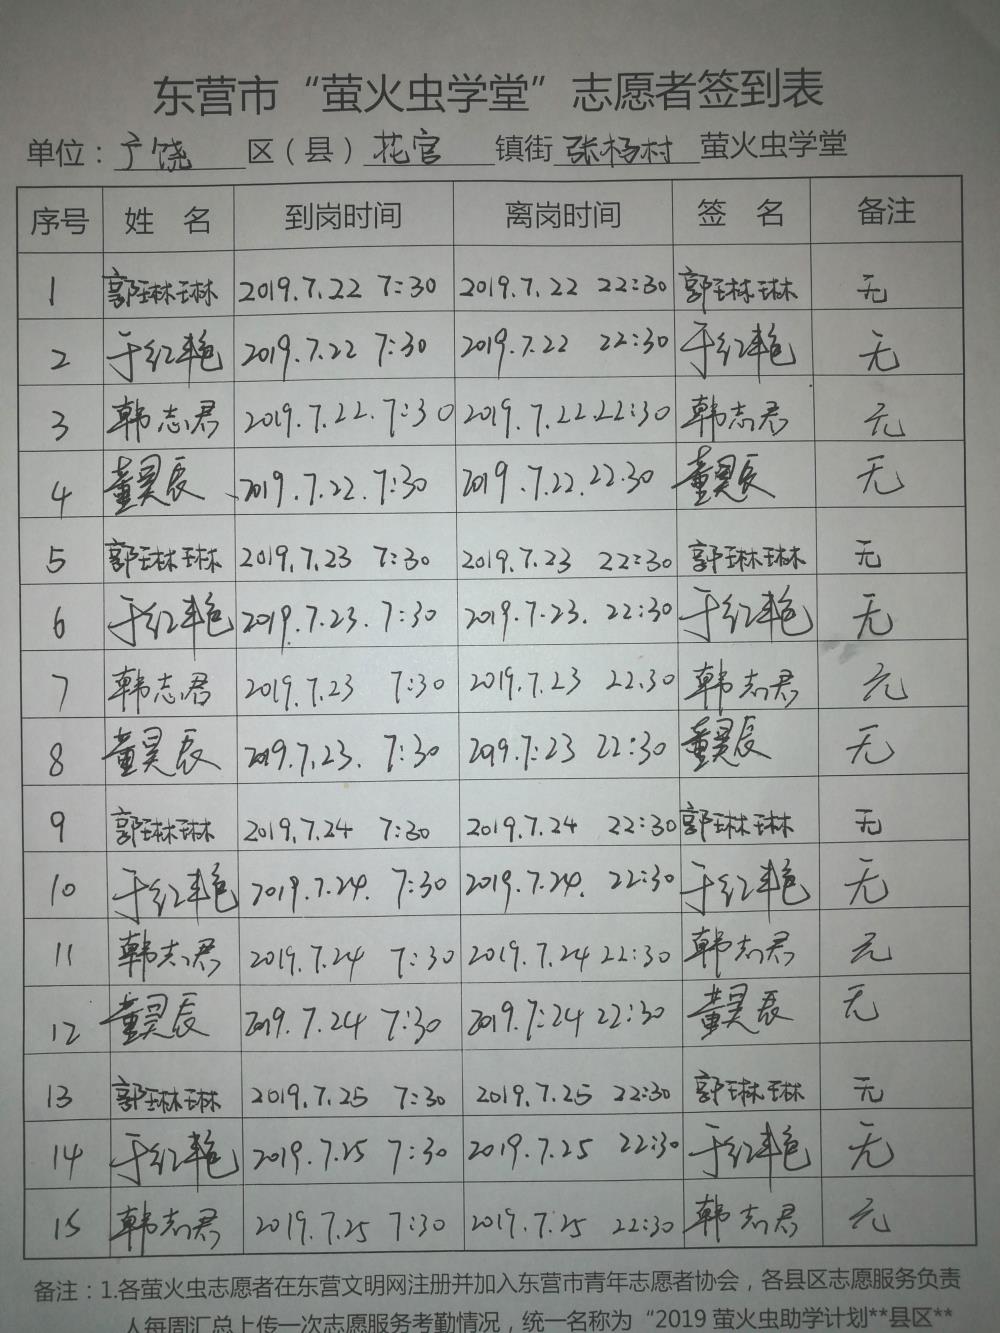 东营市“萤火虫学堂”志愿者签到表
单位：广饶 区（县）花官 镇街 张杨村 萤火虫学堂
序号 姓 名 到岗时间 离岗时间 签 名 备注
1 郭琳琳 2019.7.22 7:30 2019.7.22 22:30 郭琳琳 无
2 于红艳 2019.7.22 7:30 2019.7.22 22:30 于红艳 无
3 韩志君 2019.7.22.7:30 2019.7.22.22:30 韩志君 无
4 董昊辰 2019.7.22.7:30 2019.7.22.22.30 董昊辰 无
5 郭琳琳 2019.7.23 7:30 2019.7.23 22:30 郭琳琳 无
6 于红艳 2019.7.23.7:30 2019.7.23. 22:30 于红艳 无
7 韩志君 2019.7.23 7:30 2019.7.23 22.30 韩志君 无
8 董昊辰 2019.7.23. 7:30 2019.7:23 22:30 董昊辰 无
9 郭琳琳 2019.7.24 7:30 2019.7.24 22:30 郭琳琳 无
10 于红艳 2019.7.24. 7:30 2019.7.24. 22:30 于红艳 无
11 韩志君 2019.7.24 7:30 2019.7.24 22:30 韩志君 无
12 董昊辰 2019.7.24 7:30 2019.7:24 22:30 董昊辰 无
13 郭琳琳 2019.7.25 7:30 2019.7.25 22:30 郭琳琳 无
14 于红艳 2019.7.25 7:30 2019.7.25 22:30 于红艳 无
15 韩志君 2019.7.25 7:30 2019.7.25 22:30 韩志君 无
备注：1.各萤火虫志愿者在东营文明网注册并加入东营市青年志愿者协会，各县区志愿服务负责
人每周汇总上传一次志愿服务考勤情况，统一名称为“2019 萤火虫助学计划**县区**